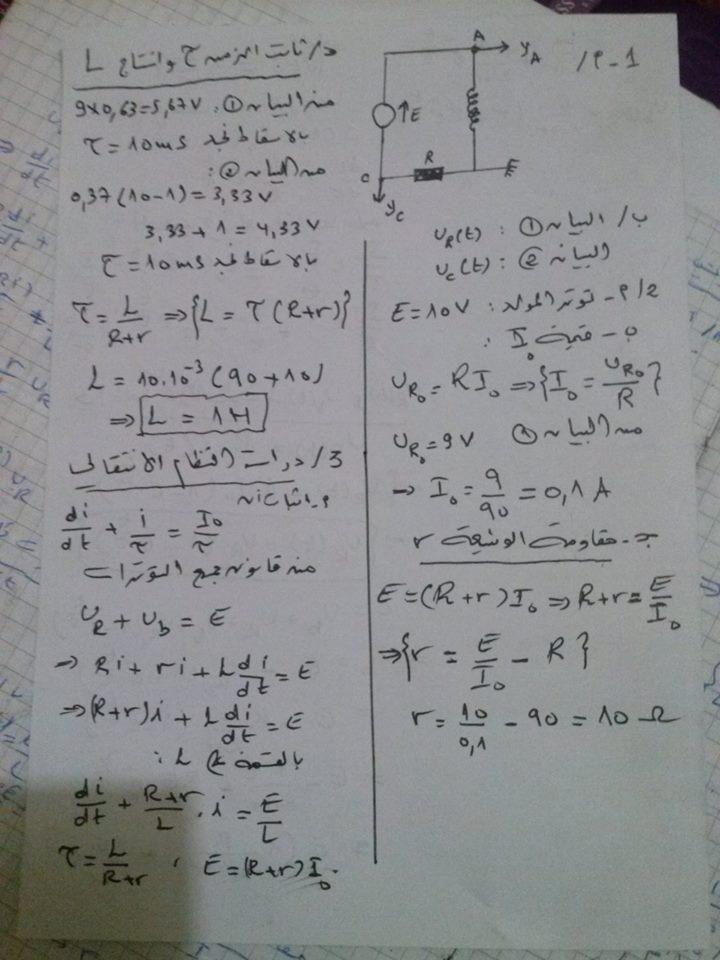 1-أ/
A
y_A
E
R
C
y_C
ب/ البيان ①: u_R(t)
البيان ②: u_C(t)
2/أ- توتر المولد: E = 10V
ب- قيمة I₀:
U_R₀ = R I₀ ⇒ {I₀ = U_R₀/R}
من البيان ① U_R₀ = 9V
→ I₀ = 9/90 = 0,1 A
جـ- مقاومة الوشيعة r
E = (R+r) I₀ ⇒ R+r = E/I₀
⇒ {r = E/I₀ - R}
r = 10/0,1 - 90 = 10 Ω
د/ ثابت الزمن τ و L
من البيان ①: 9×0,63 = 5,67V
بالاسقاط نجد τ = 10ms
من البيان ②:
0,37(10-1) = 3,33V
3,33 + 1 = 4,33V
بالاسقاط نجد τ = 10ms
τ = L/(R+r) ⇒ {L = τ(R+r)}
L = 10.10⁻³ (90+10)
⇒ L = 1H
3/ دراسة النظام الانتقالي
di/dt + i/τ = I₀/τ
من قانون جمع التوترات
U_R + U_b = E
→ Ri + ri + L di/dt = E
⇒ (R+r)i + L di/dt = E
بالقسمة على L:
di/dt + (R+r)/L . i = E/L
τ = L/(R+r) , E = (R+r) I₀.